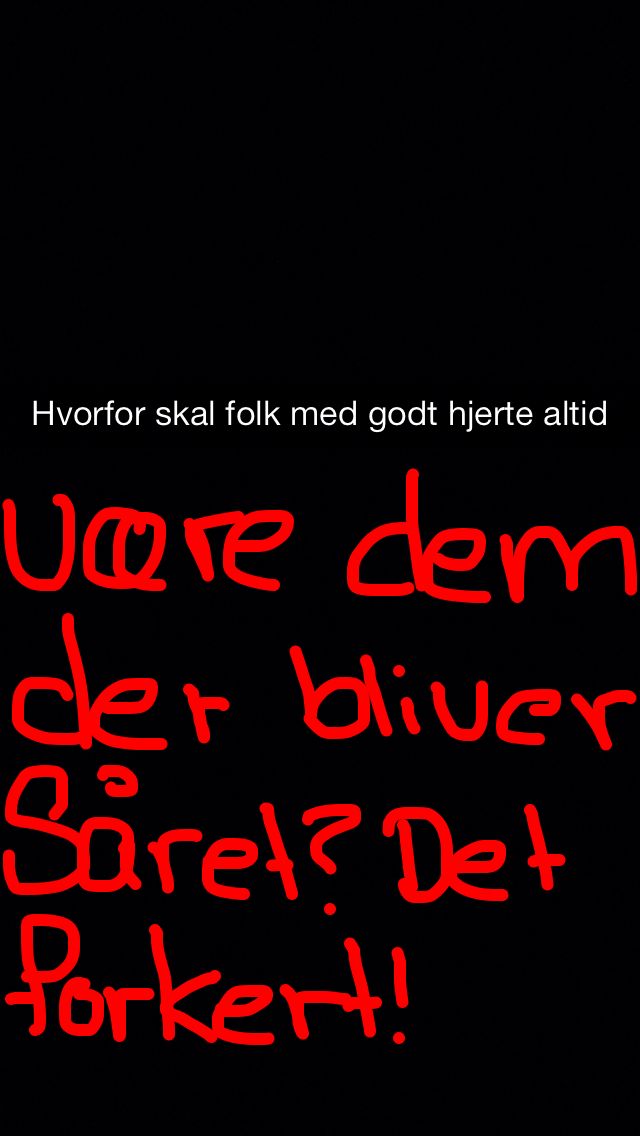 Hvorfor skal folk med godt hjerte altid
være dem
der bliver
Såret? Det
forkert!